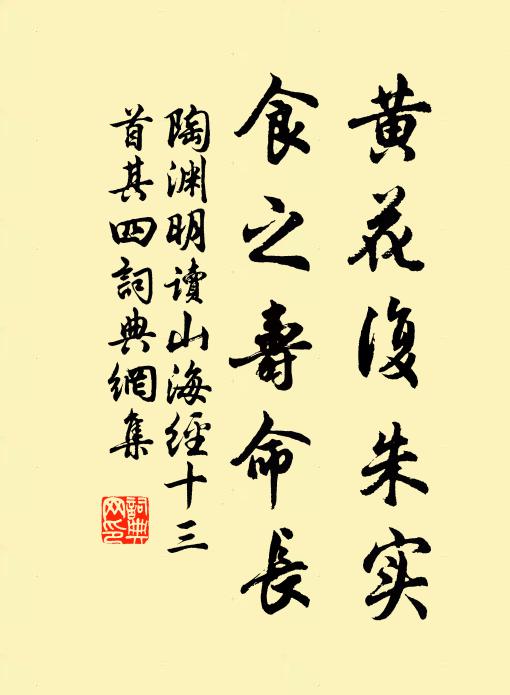 黄花復朱实
食之壽命長
陶渊明读山海經十三
首其四詞典網集
詞典网印